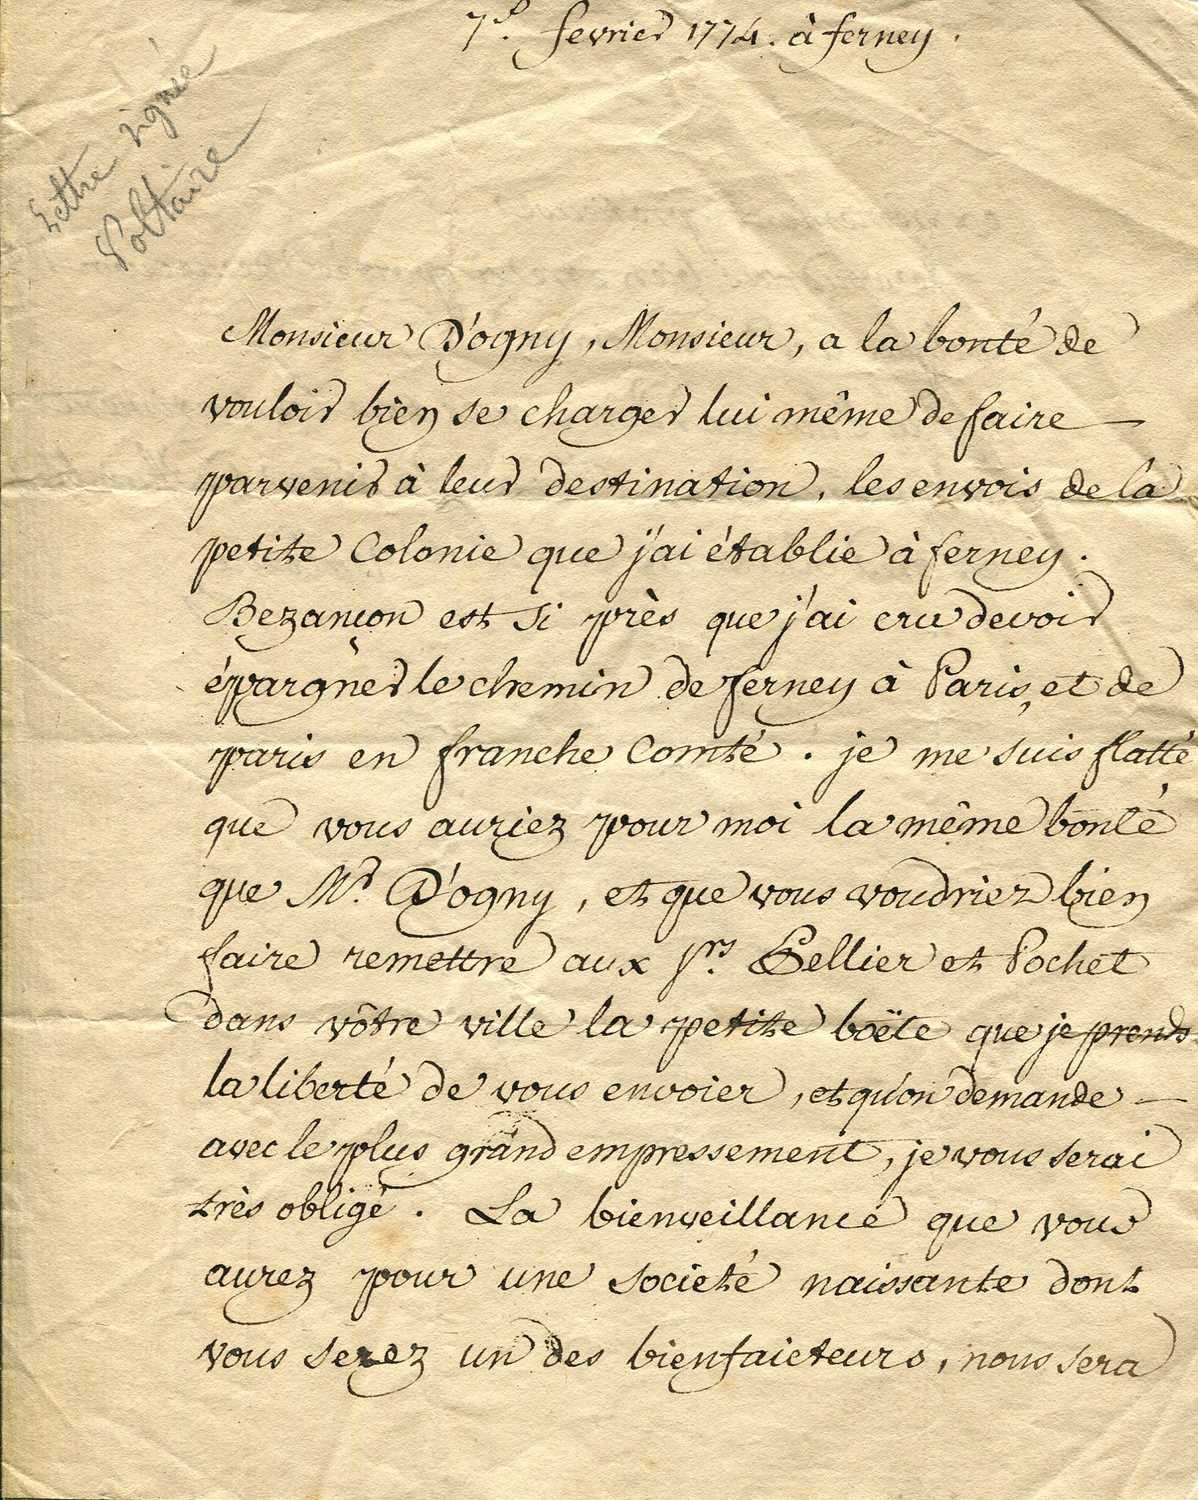 7e. fevrier 1774. à ferney.
Lettre signée
Voltaire
Monsieur D'ogny, Monsieur, a la bonté de
vouloir bien se charger lui même de faire
parvenir à leur destination, les envois de la
petite Colonie que j'ai établie à ferney.
Bezançon est si près que j'ai cru devoir
épargner le chemin de ferney à Paris, et de
paris en franche Comté. je me suis flatté
que vous auriez pour moi la même bonté
que Mr. D'ogny, et que vous voudriez bien
faire remettre aux Srs. Pellier et Pochet
dans vôtre ville la petite boëte que je prends
la liberté de vous envoier, et qu'on demande
avec le plus grand empressement, je vous serai
très obligé. La bienveillance que vous
aurez pour une societé naissante dont
vous serez un des bienfaicteurs, nous sera